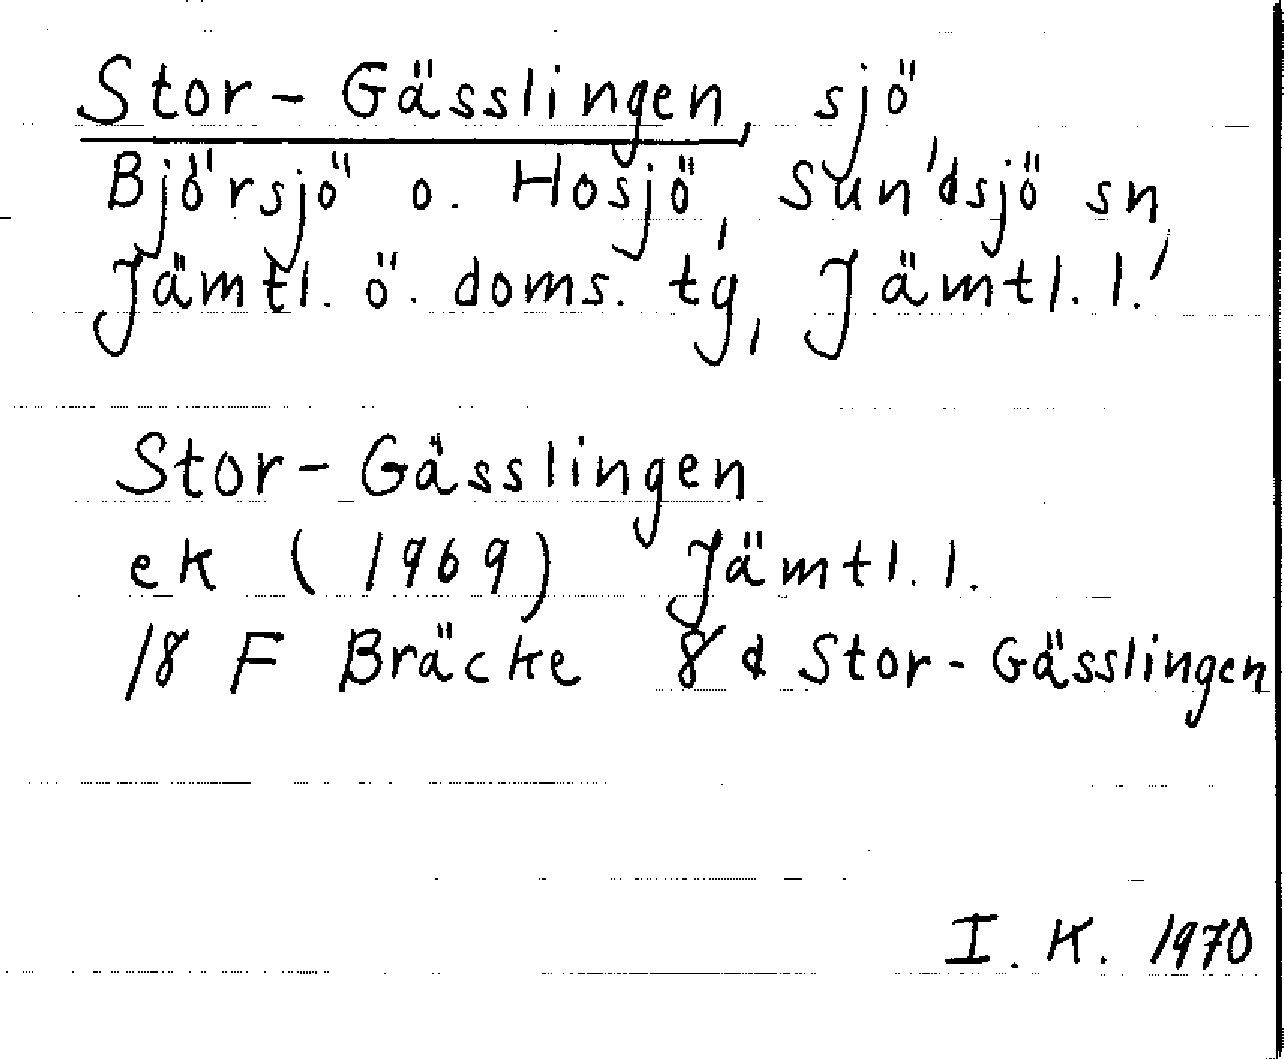 Stor-Gässlingen, sjö
Björsjö o. Hosjö, Sundsjö sn,
Jämtl. ö. doms. tg, Jämtl. l.
Stor-Gässlingen
ek (1969) Jämtl. l.
18 F Bräcke 8 d Stor-Gässlingen
I. K. 1970